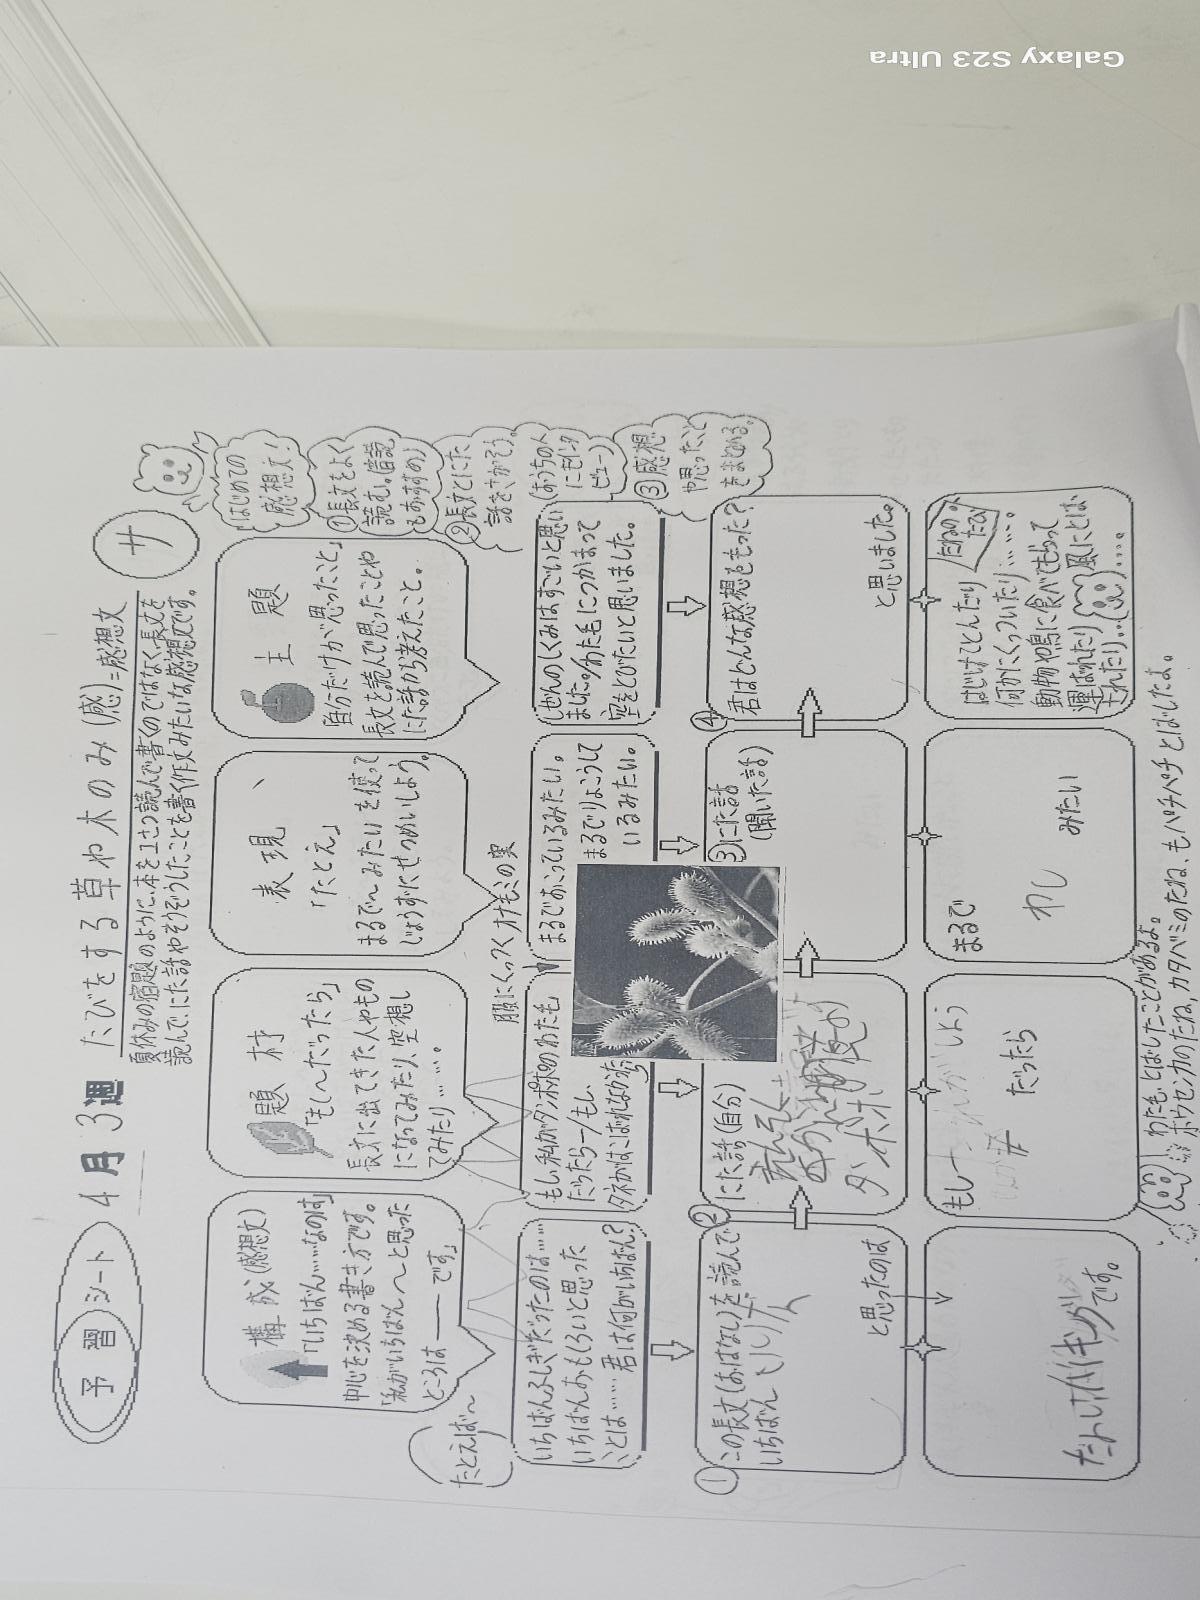 予習シート 4月3週 たびをする草や木のみ(感)=感想文 サ
夏休みの宿題のように、本を1さつ読んで書くのではなく、長文を
読んで、にた話やそうぞうしたことを書く作文みたいな感想文です。
はじめての
感想文!
①長文をよく
読む。(音読
もおすすめ)
②長文とにた
話をさがそう。
(おうちの人
にもインタ
ビュー)
③感想
や思ったこと
をまとめる。
構成(感想文)
「いちばん……なのは」
中心を決める書き方です。
「私がいちばん〜と思った
ところは――です」
題材
「もし〜だったら」
長文に出てきた人やもの
になってみたり、空想し
てみたり……。
表現
「たとえ」
まるで〜みたいを使って
じょうずにせつめいしよう。
主題
「自分だけが思ったこと」
長文を読んで思ったことや
にた話から考えたこと。
たとえば〜
いちばんふしぎだったのは……
いちばんおもしろいと思った
ことは……君は何がいちばん?
もし、私がタンポポのわた毛
だったら―/もし、
タネがはこばれなかったら
服にくっつくオナモミの実
まるでおこっているみたい。
まるでりょこうして
いるみたい。
しぜんのしくみはすごいと思い
ました。/わた毛につかまって
空をとびたいと思いました。
①この長文(おはなし)を読んで
いちばん
と思ったのは
です。
②にた話(自分)
タンポポ
もし
だったら
③にた話
(聞いた話)
まるで
わし
みたい
④君はどんな感想をもった?
と思いました。
たねの
たび
はじけてとんだり
何かにくっついたり……。
動物や鳥に食べてもらって
運ばれたり
風にとば
されたり…
わた毛、とばしたことがあるよ。
ホウセンカのたね、カタバミのたね、もパチパチとばしたよ。
Galaxy S23 Ultra